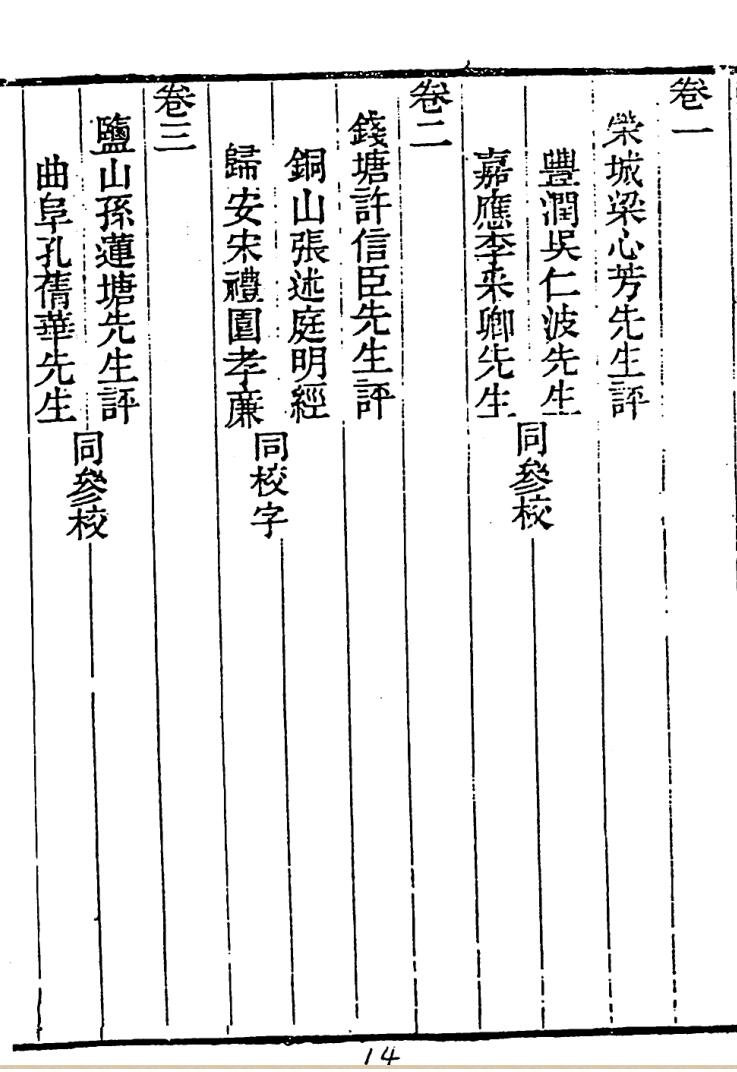 卷一
榮城梁心芳先生評
豐潤吳仁波先生
嘉應李采卿先生
同參校
卷二
錢塘許信臣先生評
銅山張述庭明經
歸安宋禮園孝廉
同校字
卷三
鹽山孫蓮塘先生評
曲阜孔蒨華先生
同參校
14